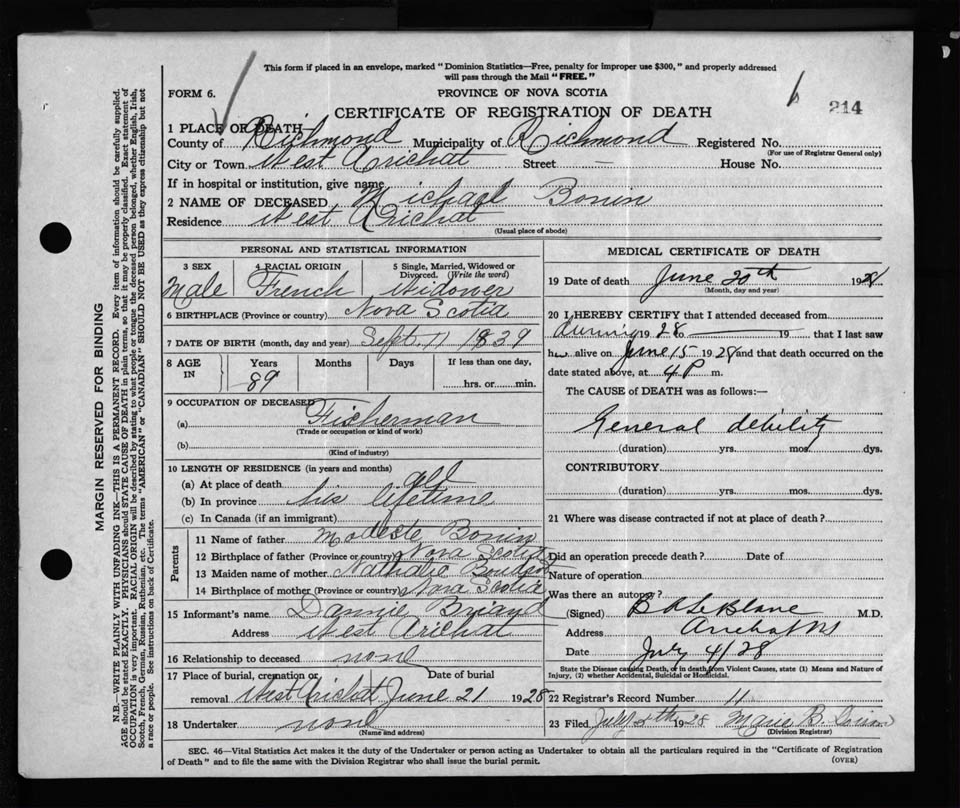 This form if placed in an envelope, marked "Dominion Statistics—Free, penalty for improper use $300," and properly addressed
will pass through the Mail "FREE."
FORM 6.
PROVINCE OF NOVA SCOTIA
CERTIFICATE OF REGISTRATION OF DEATH
214
1 PLACE OF DEATH
County of Richmond Municipality of Richmond Registered No.
(For use of Registrar General only)
City or Town West Arichat Street — House No.
If in hospital or institution, give name
2 NAME OF DECEASED Michael Bonin
Residence West Arichat
(Usual place of abode)
MARGIN RESERVED FOR BINDING
N.B.—WRITE PLAINLY WITH UNFADING INK—THIS IS A PERMANENT RECORD. Every item of information should be carefully supplied.
AGE should be stated EXACTLY. PHYSICIANS should STATE CAUSE OF DEATH in plain terms, so that it may be properly classified. Exact statement of
OCCUPATION is very important. RACIAL ORIGIN will be described by stating to what people or tongue the deceased person belonged, whether English, Irish,
Scotch, French, German, Russian, Ruthenian, etc. The terms "AMERICAN" or "CANADIAN" SHOULD NOT BE USED as they express citizenship but not
a race or people. See instructions on back of Certificate.
PERSONAL AND STATISTICAL INFORMATION
3 SEX Male
4 RACIAL ORIGIN French
5 Single, Married, Widowed or
Divorced. (Write the word)
Widower
6 BIRTHPLACE (Province or country) Nova Scotia
7 DATE OF BIRTH (month, day and year) Sept. 11 1839
8 AGE IN Years 89 Months Days If less than one day,
hrs. or min.
9 OCCUPATION OF DECEASED
(a) Ficherman
(Trade or occupation or kind of work)
(b)
(Kind of industry)
10 LENGTH OF RESIDENCE (in years and months)
(a) At place of death all
(b) In province his lifetime
(c) In Canada (if an immigrant)
Parents
11 Name of father Modeste Bonin
12 Birthplace of father (Province or country) Nova Scotia
13 Maiden name of mother Nathalie Boudrot
14 Birthplace of mother (Province or country) Nova Scotia
15 Informant's name Dannie Briand
Address West Arichat
16 Relationship to deceased none
17 Place of burial, cremation or Date of burial
removal West Arichat June 21 1928
18 Undertaker none
(Name and address)
MEDICAL CERTIFICATE OF DEATH
19 Date of death June 20th 1928
(Month, day and year)
20 I HEREBY CERTIFY that I attended deceased from
during 1928 — 19 — that I last saw
him alive on June 15 1928 and that death occurred on the
date stated above, at 4 P m.
The CAUSE of DEATH was as follows:—
General debility
(duration) yrs. mos. dys.
CONTRIBUTORY
(duration) yrs. mos. dys.
21 Where was disease contracted if not at place of death?
Did an operation precede death? Date of
Nature of operation
Was there an autopsy?
(Signed) B A LeBlanc M.D.
Address Arichat NS
Date July 4/28
State the Disease causing Death, or in death from Violent Causes, state (1) Means and Nature of
Injury, (2) whether Accidental, Suicidal or Homicidal.
22 Registrar's Record Number 11
23 Filed July 1928 Marie B.
(Division Registrar)
SEC. 46—Vital Statistics Act makes it the duty of the Undertaker or person acting as Undertaker to obtain all the particulars required in the "Certificate of Registration
of Death" and to file the same with the Division Registrar who shall issue the burial permit.
(OVER)